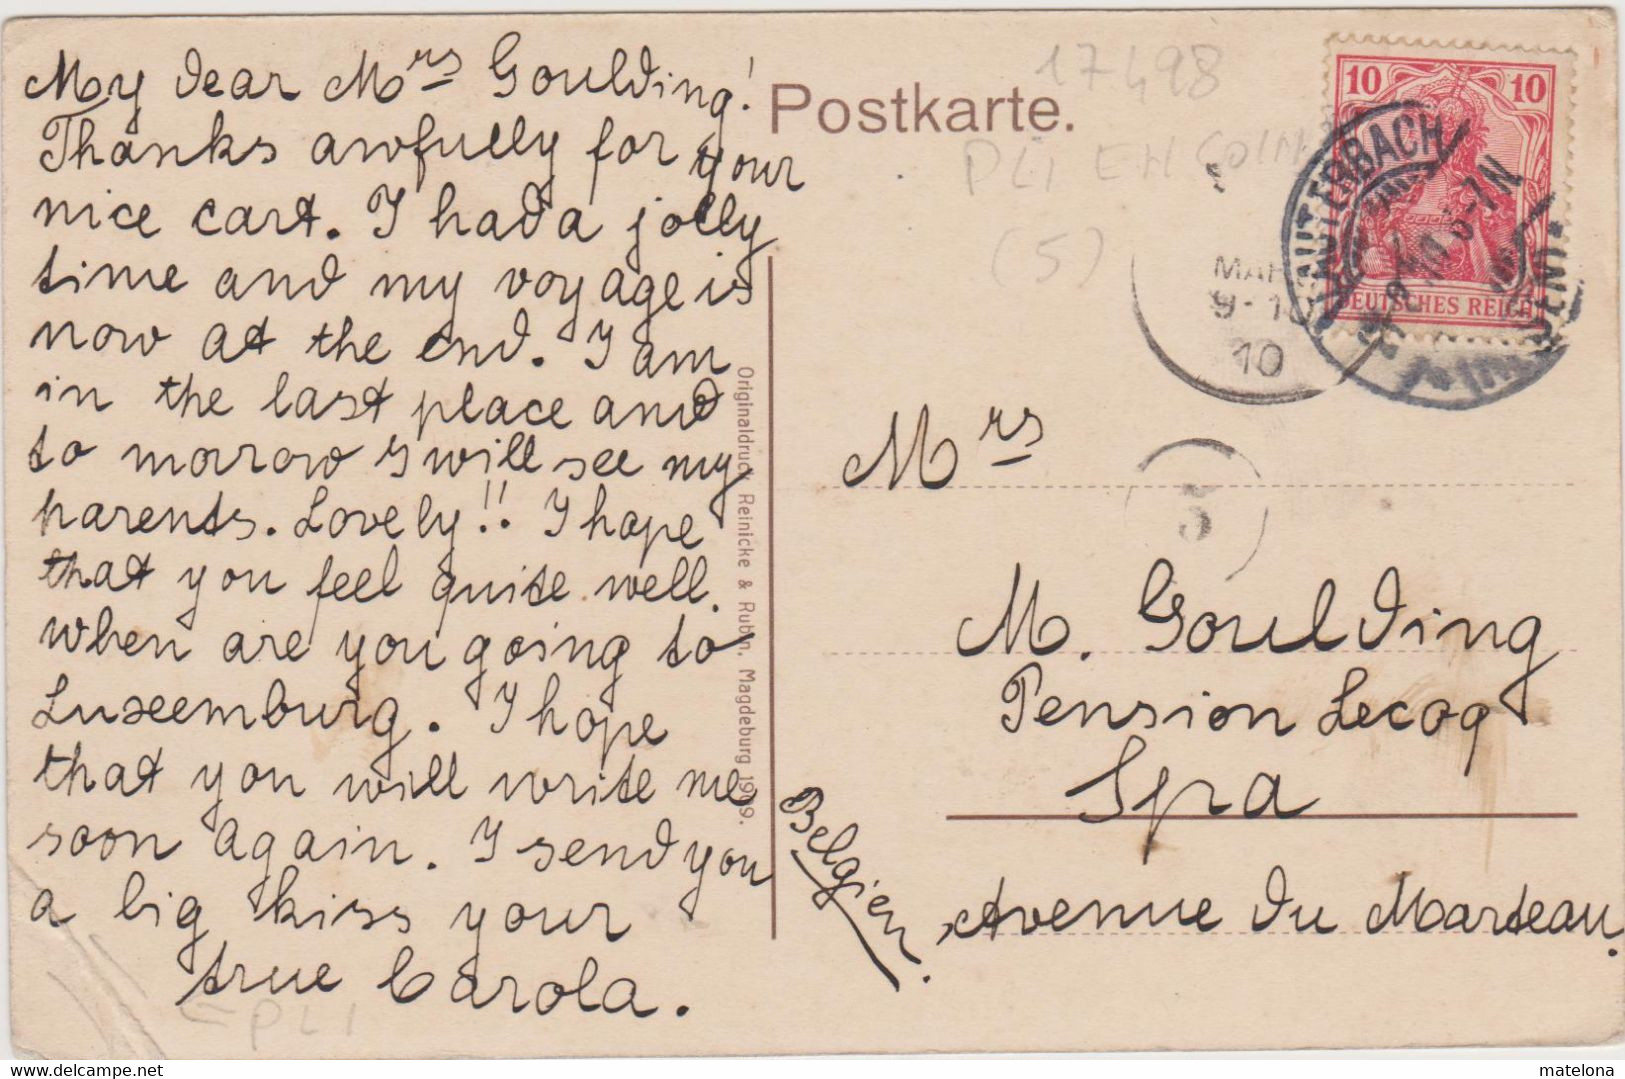 My dear Mrs Goulding!
Thanks awfully for your
nice cart. I had a jolly
time and my voyage is
now at the end. I am
in the last place and
to morrow I will see my
parents. Lovely!! I hope
that you feel quite well.
when are you going to
Luxemburg. I hope
that you will write me
soon again. I send you
a big kiss your
true Carola.
Postkarte.
17498
PLI EN COIN
(5)
10 10
DEUTSCHES REICH
MAR
9-10
10
5
Originaldruck Reinicke & Rubin, Magdeburg 1909.
Mrs
M. Goulding
Pension Lecoq
Spa
Belgien.
Avenue du Marteau.
PLI
delcampe.net
matelona